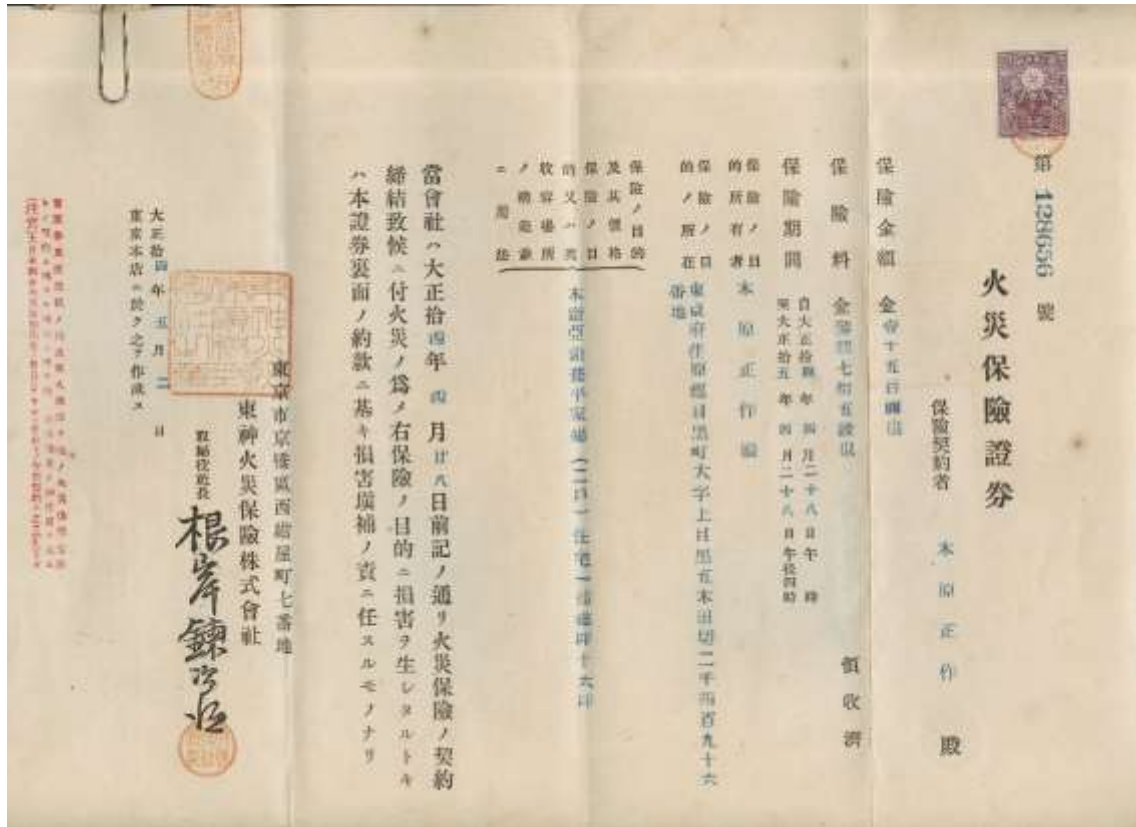 第 128656 號
火災保險證券
保險契約者 木原正作 殿
保險金額 金壹千五百圓也
保險料 金 七拾五錢也 領收濟
保險期間 自大正拾四年四月二十八日午 時
至大正拾五年四月二十八日午後四時
保險ノ目的ノ所有者 木原正作
保險ノ目的ノ所在 東京府荏原郡目黑町大字上目黑五本木田切二千四百九十六
番地
保險ノ目的
及其價格
保險ノ目
的又ハ其
收容場所
ノ構造並
ニ用法
木造亞鉛葺平家建 住宅
當會社ハ大正拾四年四月廿八日前記ノ通リ火災保險ノ契約
締結致候ニ付火災ノ爲メ右保險ノ目的ニ損害ヲ生シタルトキ
ハ本證券裏面ノ約款ニ基キ損害塡補ノ責ニ任スルモノナリ
東京市京橋區西紺屋町七番地
東神火災保險株式會社
取締役社長 根岸鍊次郎
大正拾四年五月二日
東京本店ニ於テ之ヲ作成ス